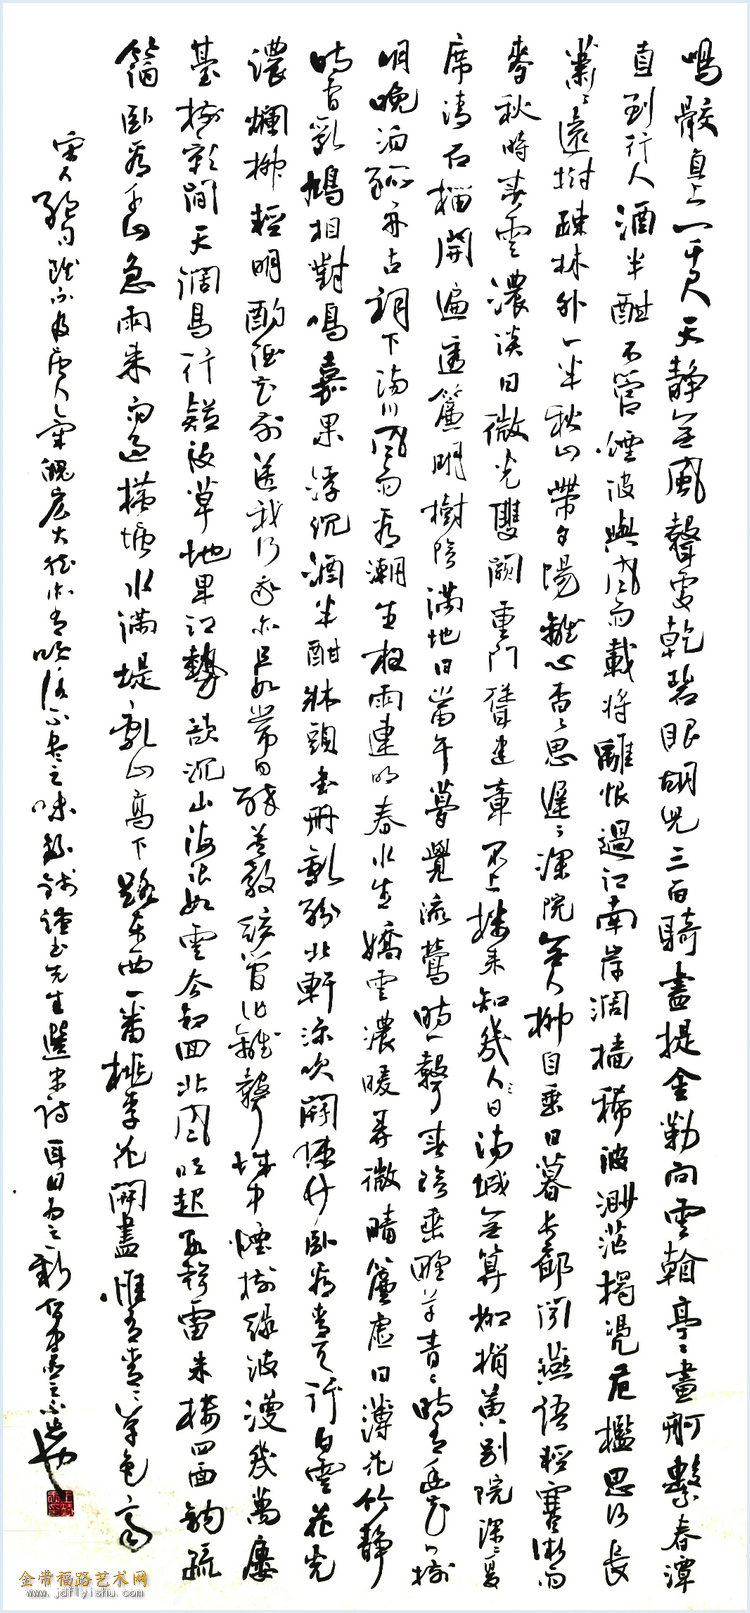 鳴骹直上一千尺天靜無風聲更乾碧眼胡兒三百騎盡提金勒向雲看亭亭畫舸繫春潭
直到行人酒半酣不管煙波與風雨載將離恨過江南岸濶檣稀波渺茫獨憑危檻思何長
蕭蕭遠樹疎林外一半秋山帶夕陽離心杳杳思遲遲深院無人柳自垂日暮長廊聞燕語輕寒微雨
麥秋時春雲濃淡日微光雙闕重門聳建章不上樓來知幾日滿城無算柳梢黃別院深深夏
席清石榴開遍透簾明樹陰滿地日當午夢覺流鶯時一聲春陰垂野草青青時有幽花一樹
明晚泊孤舟古祠下滿川風雨看潮生夜雨連明春水生嬌雲濃暖弄微晴簾虛日薄花竹靜
時有乳鳩相對鳴嘉果浮沉酒半酣牀頭書冊亂紛紛北軒涼吹開疎竹臥看青天行白雲花光
濃爛柳輕明酌酒花前送我行我亦且如常日醉莫教絃管作離聲城中煙樹綠波漫幾萬樓
臺樹影間天濶鳥行疑沒草地卑江勢欲沉山海浪如雲去却回北風吹起數聲雷朱樓四面鉤疏
箔臥看千山急雨來南過橫塘水滿堤亂山高下路東西一番桃李花開盡惟有青青草色齊
宋人絕句雖不及唐人氣魄宏大然亦有不盡之味先生選宋詩耳目為之一新
金带福路艺术网
www.jdflyishu.com